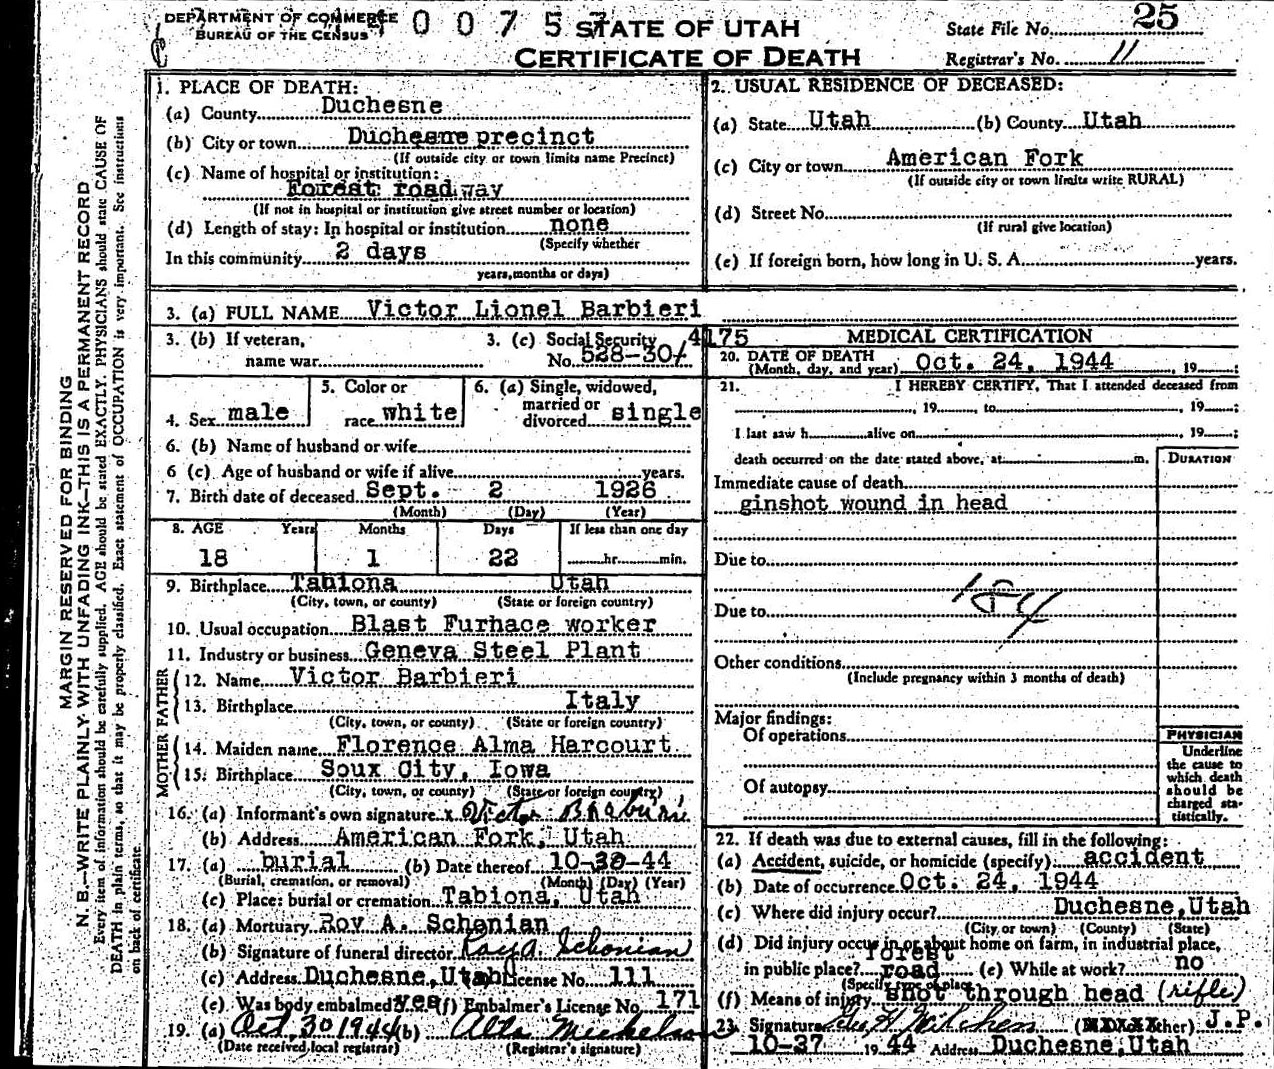 DEPARTMENT OF COMMERCE
BUREAU OF THE CENSUS
0 0 7 5
STATE OF UTAH
CERTIFICATE OF DEATH
State File No. 25
Registrar's No. 11
MARGIN RESERVED FOR BINDING
N. B.—WRITE PLAINLY WITH UNFADING INK—THIS IS A PERMANENT RECORD
Every item of information should be carefully supplied. AGE should be stated EXACTLY. PHYSICIANS should state CAUSE OF
DEATH in plain terms, so that it may be properly classified. Exact statement of OCCUPATION is very important. See instructions
on back of certificate.
1. PLACE OF DEATH:
(a) County Duchesne
(b) City or town Duchesne precinct
(If outside city or town limits name Precinct)
(c) Name of hospital or institution:
Forest roadway
(If not in hospital or institution give street number or location)
(d) Length of stay: In hospital or institution none
(Specify whether
In this community 2 days
years, months or days)
2. USUAL RESIDENCE OF DECEASED:
(a) State Utah (b) County Utah
(c) City or town American Fork
(If outside city or town limits write RURAL)
(d) Street No.
(If rural give location)
(e) If foreign born, how long in U. S. A. years.
3. (a) FULL NAME Victor Lionel Barbieri
3. (b) If veteran,
name war
3. (c) Social Security 4175
No. 528-30
4. Sex male
5. Color or
race white
6. (a) Single, widowed,
married or
divorced single
6. (b) Name of husband or wife
6 (c) Age of husband or wife if alive years.
7. Birth date of deceased Sept. 2 1926
(Month) (Day) (Year)
8. AGE Years Months Days If less than one day
18 1 22 hr. min.
9. Birthplace Tabiona Utah
(City, town, or county) (State or foreign country)
10. Usual occupation Blast Furhace worker
11. Industry or business Geneva Steel Plant
FATHER
12. Name Victor Barbieri
13. Birthplace Italy
(City, town, or county) (State or foreign country)
MOTHER
14. Maiden name Florence Alma Harcourt
15. Birthplace Soux City, Iowa
(City, town, or county) (State or foreign country)
16. (a) Informant's own signature x Victor Barbieri
(b) Address American Fork, Utah
17. (a) burial (b) Date thereof 10-30-44
(Burial, cremation, or removal) (Month) (Day) (Year)
(c) Place: burial or cremation Tabiona, Utah
18. (a) Mortuary Roy A. Schonian
(b) Signature of funeral director Roy A. Schonian
(c) Address Duchesne, Utah License No. 111
(e) Was body embalmed yes (f) Embalmer's License No. 171
19. (a) Oct 30 1944 (b) Alta Mickelson
(Date received local registrar) (Registrar's signature)
MEDICAL CERTIFICATION
20. DATE OF DEATH
(Month, day, and year) Oct. 24, 1944, 19 ;
21. I HEREBY CERTIFY, That I attended deceased from
, 19 , to , 19 ;
I last saw h alive on , 19 ;
death occurred on the date stated above, at m.
DURATION
Immediate cause of death
ginshot wound in head
Due to
184
Due to
Other conditions
(Include pregnancy within 3 months of death)
Major findings:
Of operations
Of autopsy
PHYSICIAN
Underline
the cause to
which death
should be
charged sta-
tistically.
22. If death was due to external causes, fill in the following:
(a) Accident, suicide, or homicide (specify) accident
(b) Date of occurrence Oct. 24, 1944
(c) Where did injury occur? Duchesne, Utah
(City or town) (County) (State)
(d) Did injury occur in or about home on farm, in industrial place,
in public place? forest road (e) While at work? no
(Specify type of place)
(f) Means of injury shot through head (rifle)
23. Signature (other) J.P.
10-27 1944 Address Duchesne, Utah